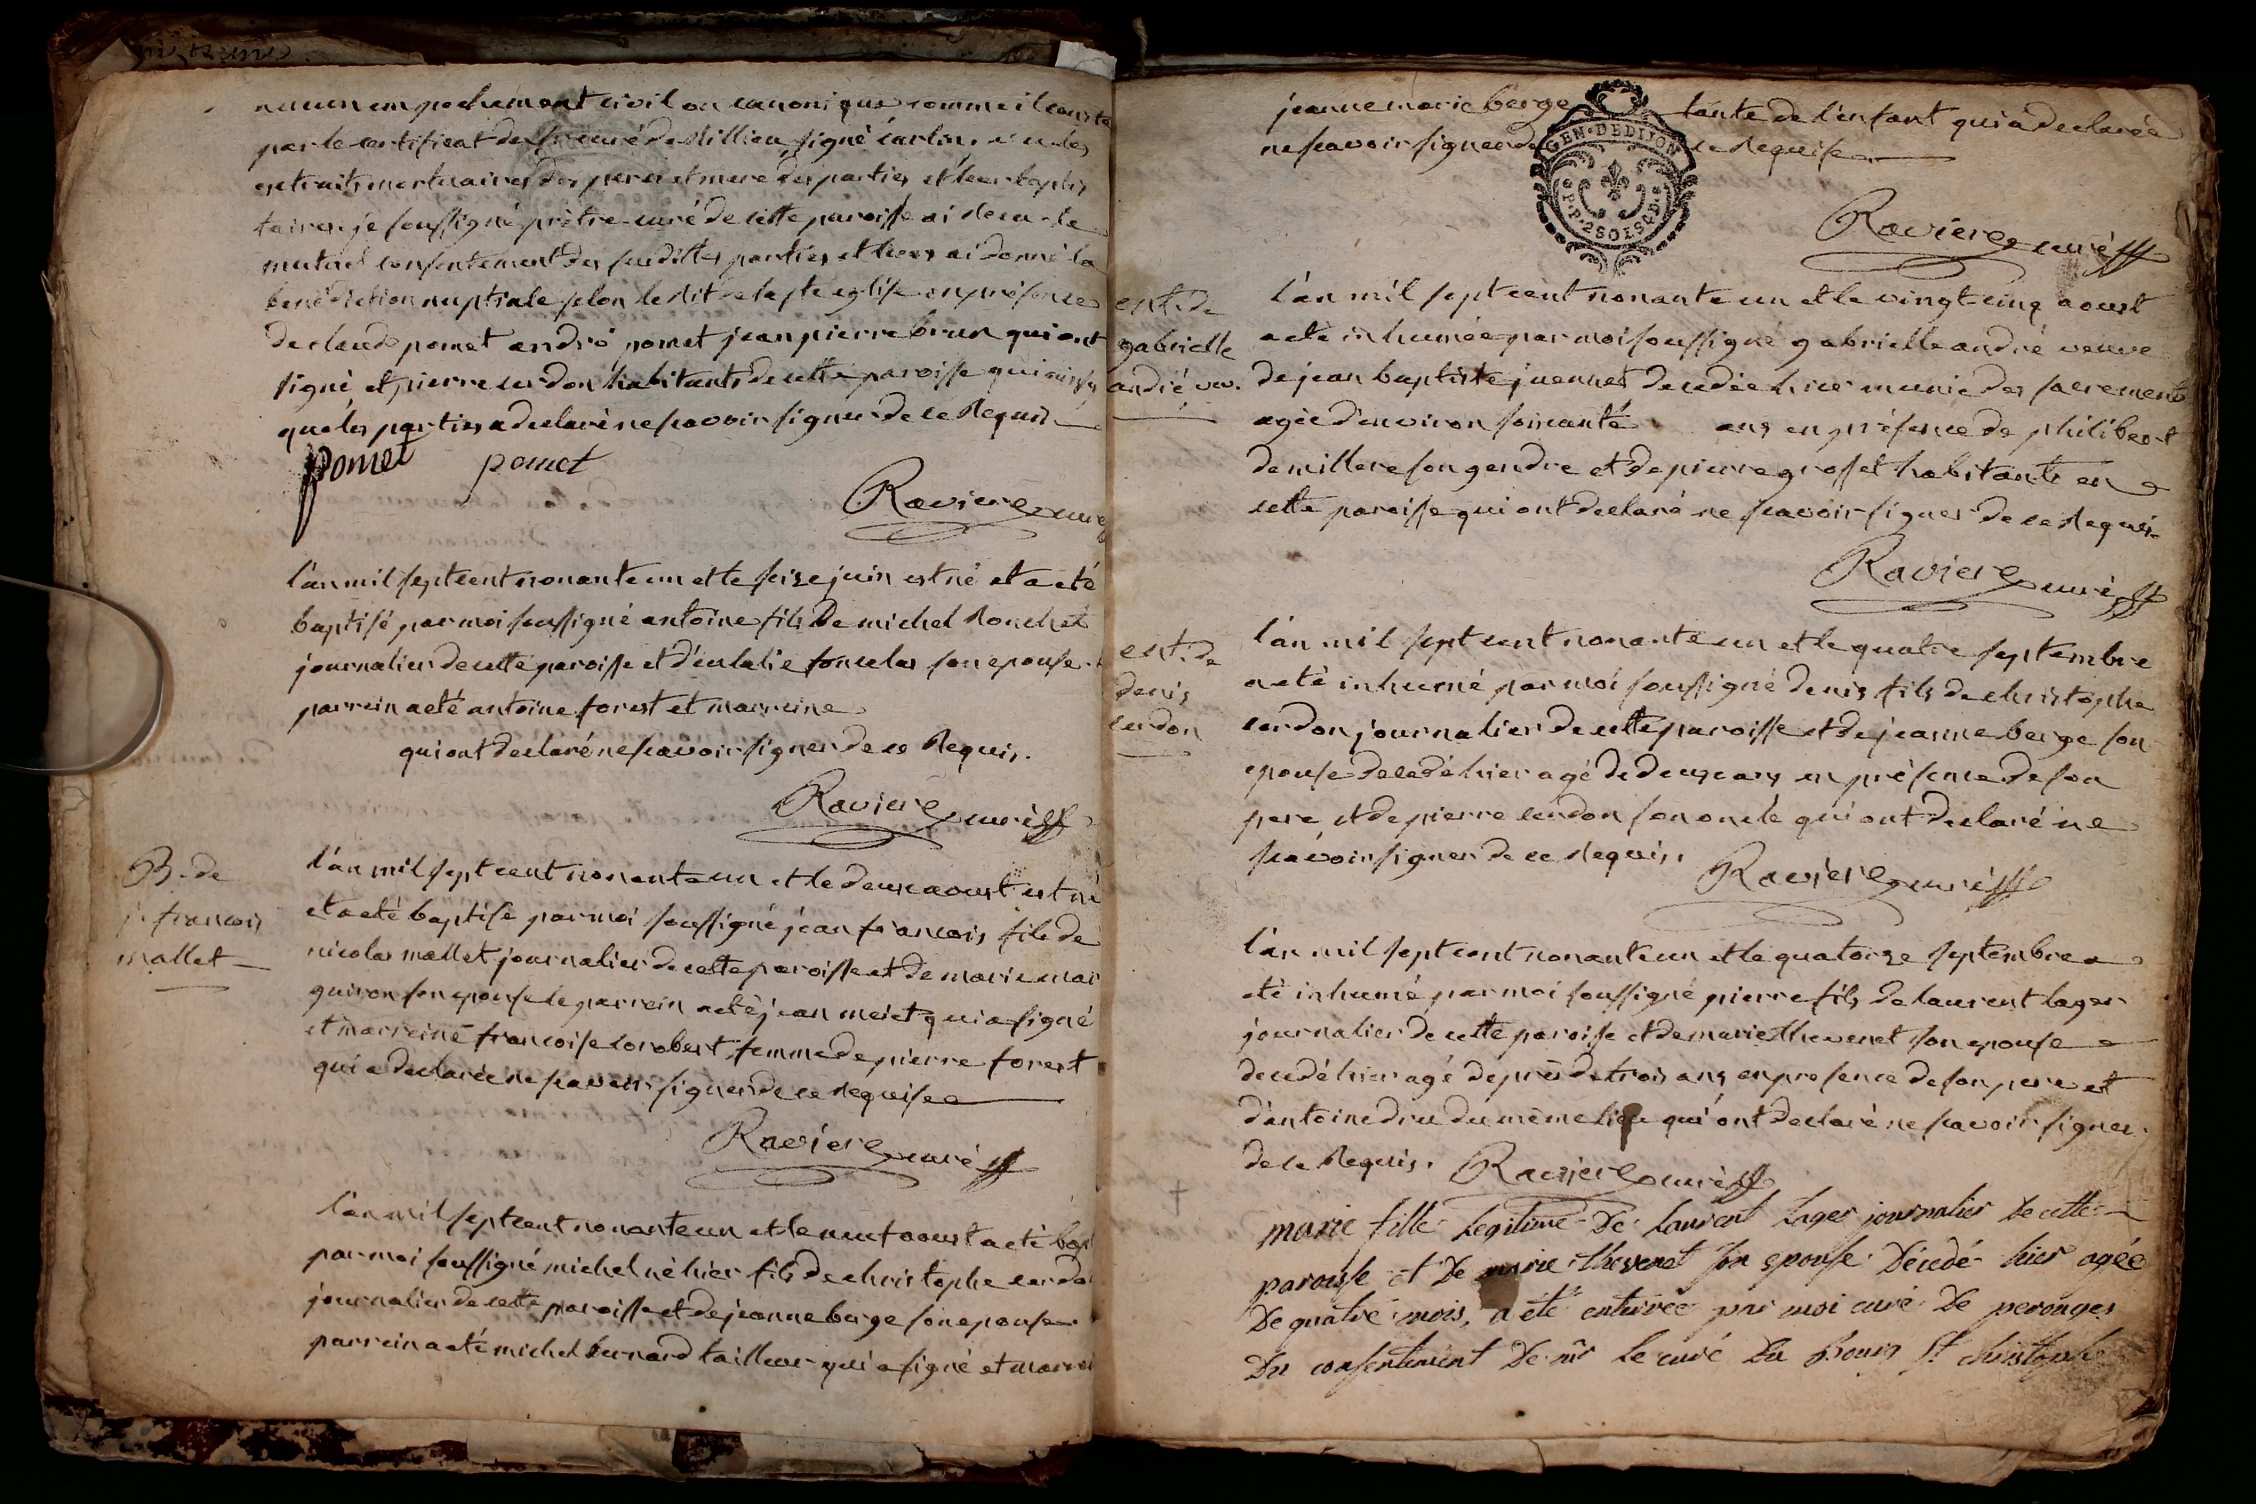 aucun empechement civil ou canonique comme il conste
par le certificat de sr curé de Millieu signé carlin. vu les
extraits mortuaires des peres et mere des parties et leur baptis
taires je soussigné prètre curé de cette paroisse ai recu le
mutuel consentement des sudittes parties et leur ai donné la
benédiction nuptiale selon le rit de la ste eglise en présence
de claude pomet andré pomet jean pierre brun qui ont
signé et pierre cerdon habitants de cette paroisse qui ainsy
que les parties a declaré ne scavoir signer de ce Requis
pomet pomet
Raviere curé
l'an mil sept cent nonante un et le seize juin est né et a eté
baptisé par moi soussigné antoine fils de michel Ronchet
journalier de cette paroisse et d'eulalie son epouse
parrein a eté antoine forest et marreine
qui ont declaré ne scavoir signer de ce Requis.
Raviere curé
B. de
j. francois
mallet
l'an mil sept cent nonante un et le deux aoust est né
et a eté baptisé par moi soussigné jean francois fils de
nicolas mallet journalier de cette paroisse et de marie mar
guiron son epouse le parrein a eté jean meiet qui a signé
et marreine francoise lorobert femme de pierre forest
qui a declarée ne scavoir signer de ce Requise
Raviere curé
l'an mil sept cent nonante un et le neuf aoust a eté bap
par moi soussigné michel né hier fils de christophe cerdon
journalier de cette paroisse et de jeanne berge son epouse
parrein a eté michel bernard tailleur qui a signé et marrei
jeanne marie berge tante de l'enfant qui a declarée
ne scavoir signer de ce Requise
GEN. DE DIJON
P.P. 2 SOLS 6 D.
Raviere curé
ent. de
gabrielle
andré vev.
l'an mil sept cent nonante un et le vingt cinq aoust
a eté inhumée par moi soussigné gabrielle andré veuve
de jean baptiste juennet decedée hier munie des sacrements
agée d'environ soixante ans en présence de philibert
demillere son gendre et de pierre grosset habitants en
cette paroisse qui ont declaré ne scavoir signer de ce Requis
Raviere curé
ent. de
denis
cerdon
l'an mil sept cent nonante un et le quatre septembre
a eté inhumé par moi soussigné denis fils de christophe
cerdon journalier de cette paroisse et de jeanne berge son
epouse decedé hier agé de deux ans en présence de son
pere et de pierre cerdon son oncle qui ont declaré ne
scavoir signer de ce Requis.
Raviere curé
l'an mil sept cent nonante un et le quatorze septembre a
eté inhumé par moi soussigné pierre fils de laurent lager
journalier de cette paroisse et de marie thevenet son epouse
decedé hier agé de près de trois ans en présence de son pere et
d'antoine dru du même lieu qui ont declaré ne scavoir signer
de ce Requis. Raviere curé
marie fille legitime de laurent lager journalier de cette
paroisse et de marie thevenet son epouse décedé hier agée
de quatre mois, a été enterrée par moi curé de perouges
du consentement de mr le curé du Bourg St christophe